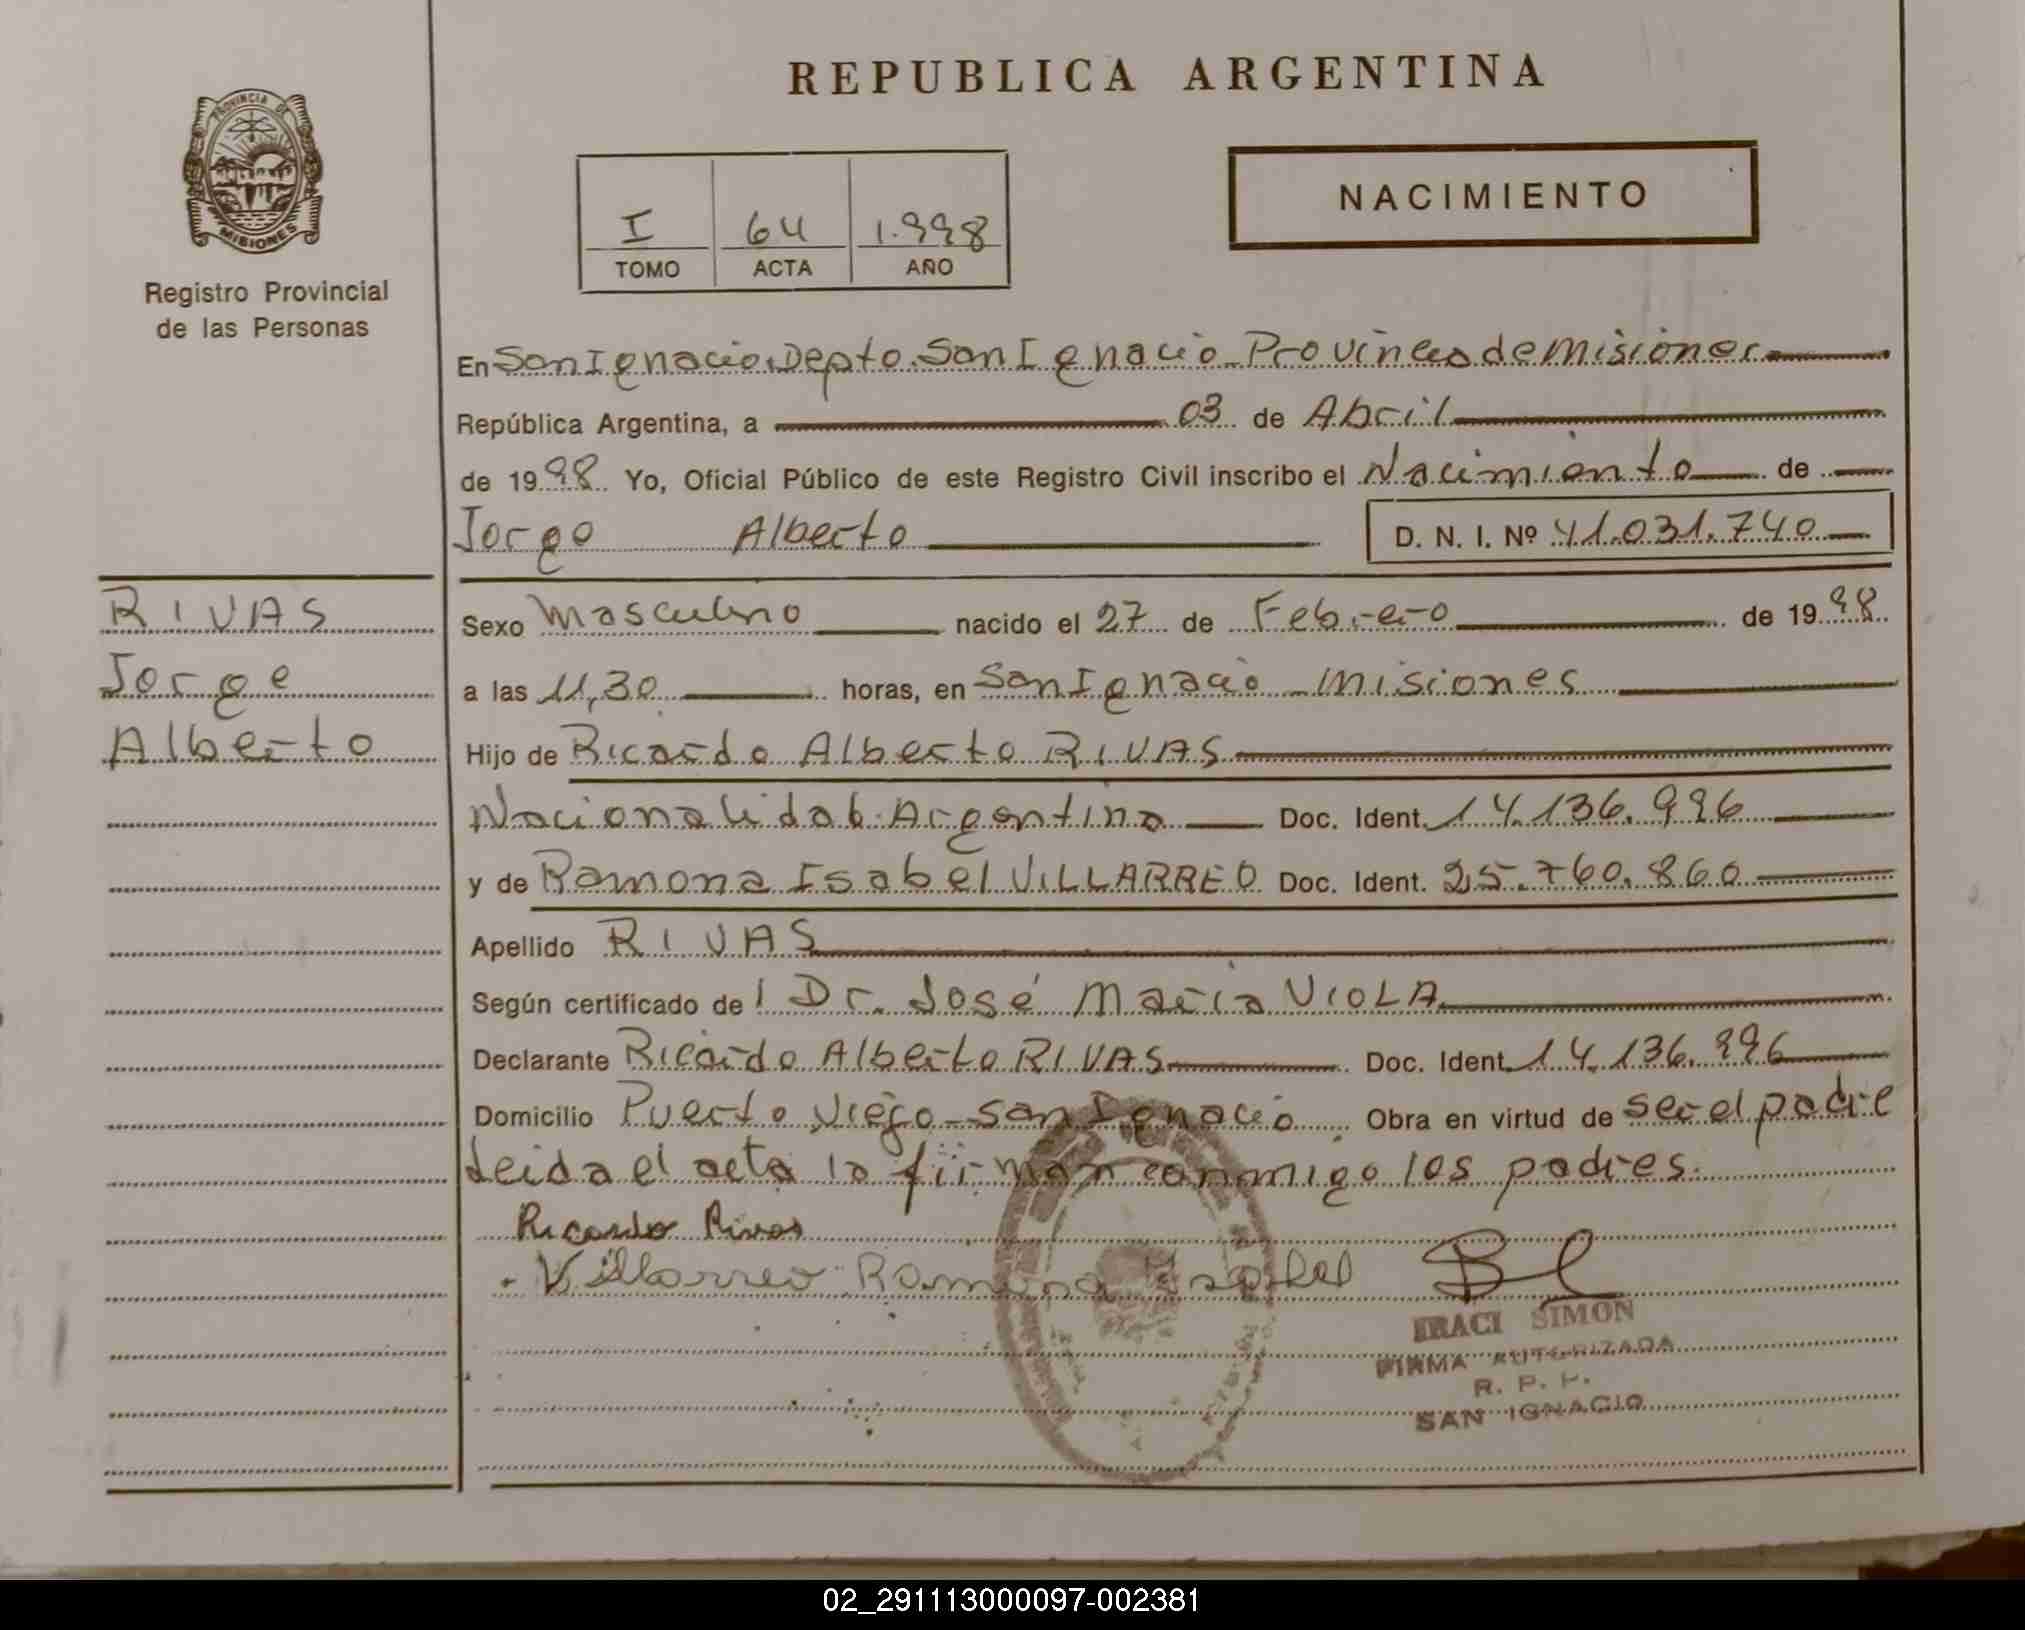 REPUBLICA ARGENTINA
PROVINCIA DE
MISIONES
Registro Provincial
de las Personas
NACIMIENTO
I 64 1.998
TOMO ACTA AÑO
En San Ignacio, Depto. San Ignacio - Provincia de Misiones
República Argentina, a 03 de Abril
de 1998 Yo, Oficial Público de este Registro Civil inscribo el Nacimiento de
Jorge Alberto D. N. I. Nº 41.031.740
RIVAS
Jorge
Alberto
Sexo Masculino nacido el 27 de Febrero de 1998
a las 11,30 horas, en San Ignacio - Misiones
Hijo de Ricardo Alberto RIVAS
Nacionalidad Argentina Doc. Ident. 14.136.996
y de Ramona Isabel VILLARREO Doc. Ident. 25.760.860
Apellido RIVAS
Según certificado de l Dr. José María VIOLA
Declarante Ricardo Alberto RIVAS Doc. Ident. 14.136.996
Domicilio Puerto Viejo - San Ignacio Obra en virtud de ser el padre
Leida el acta la firman conmigo los padres.
Ricardo Rivas
Villarreo Ramona Isabel
IRACI SIMON
FIRMA AUTORIZADA
R. P. P.
SAN IGNACIO
02_291113000097-002381